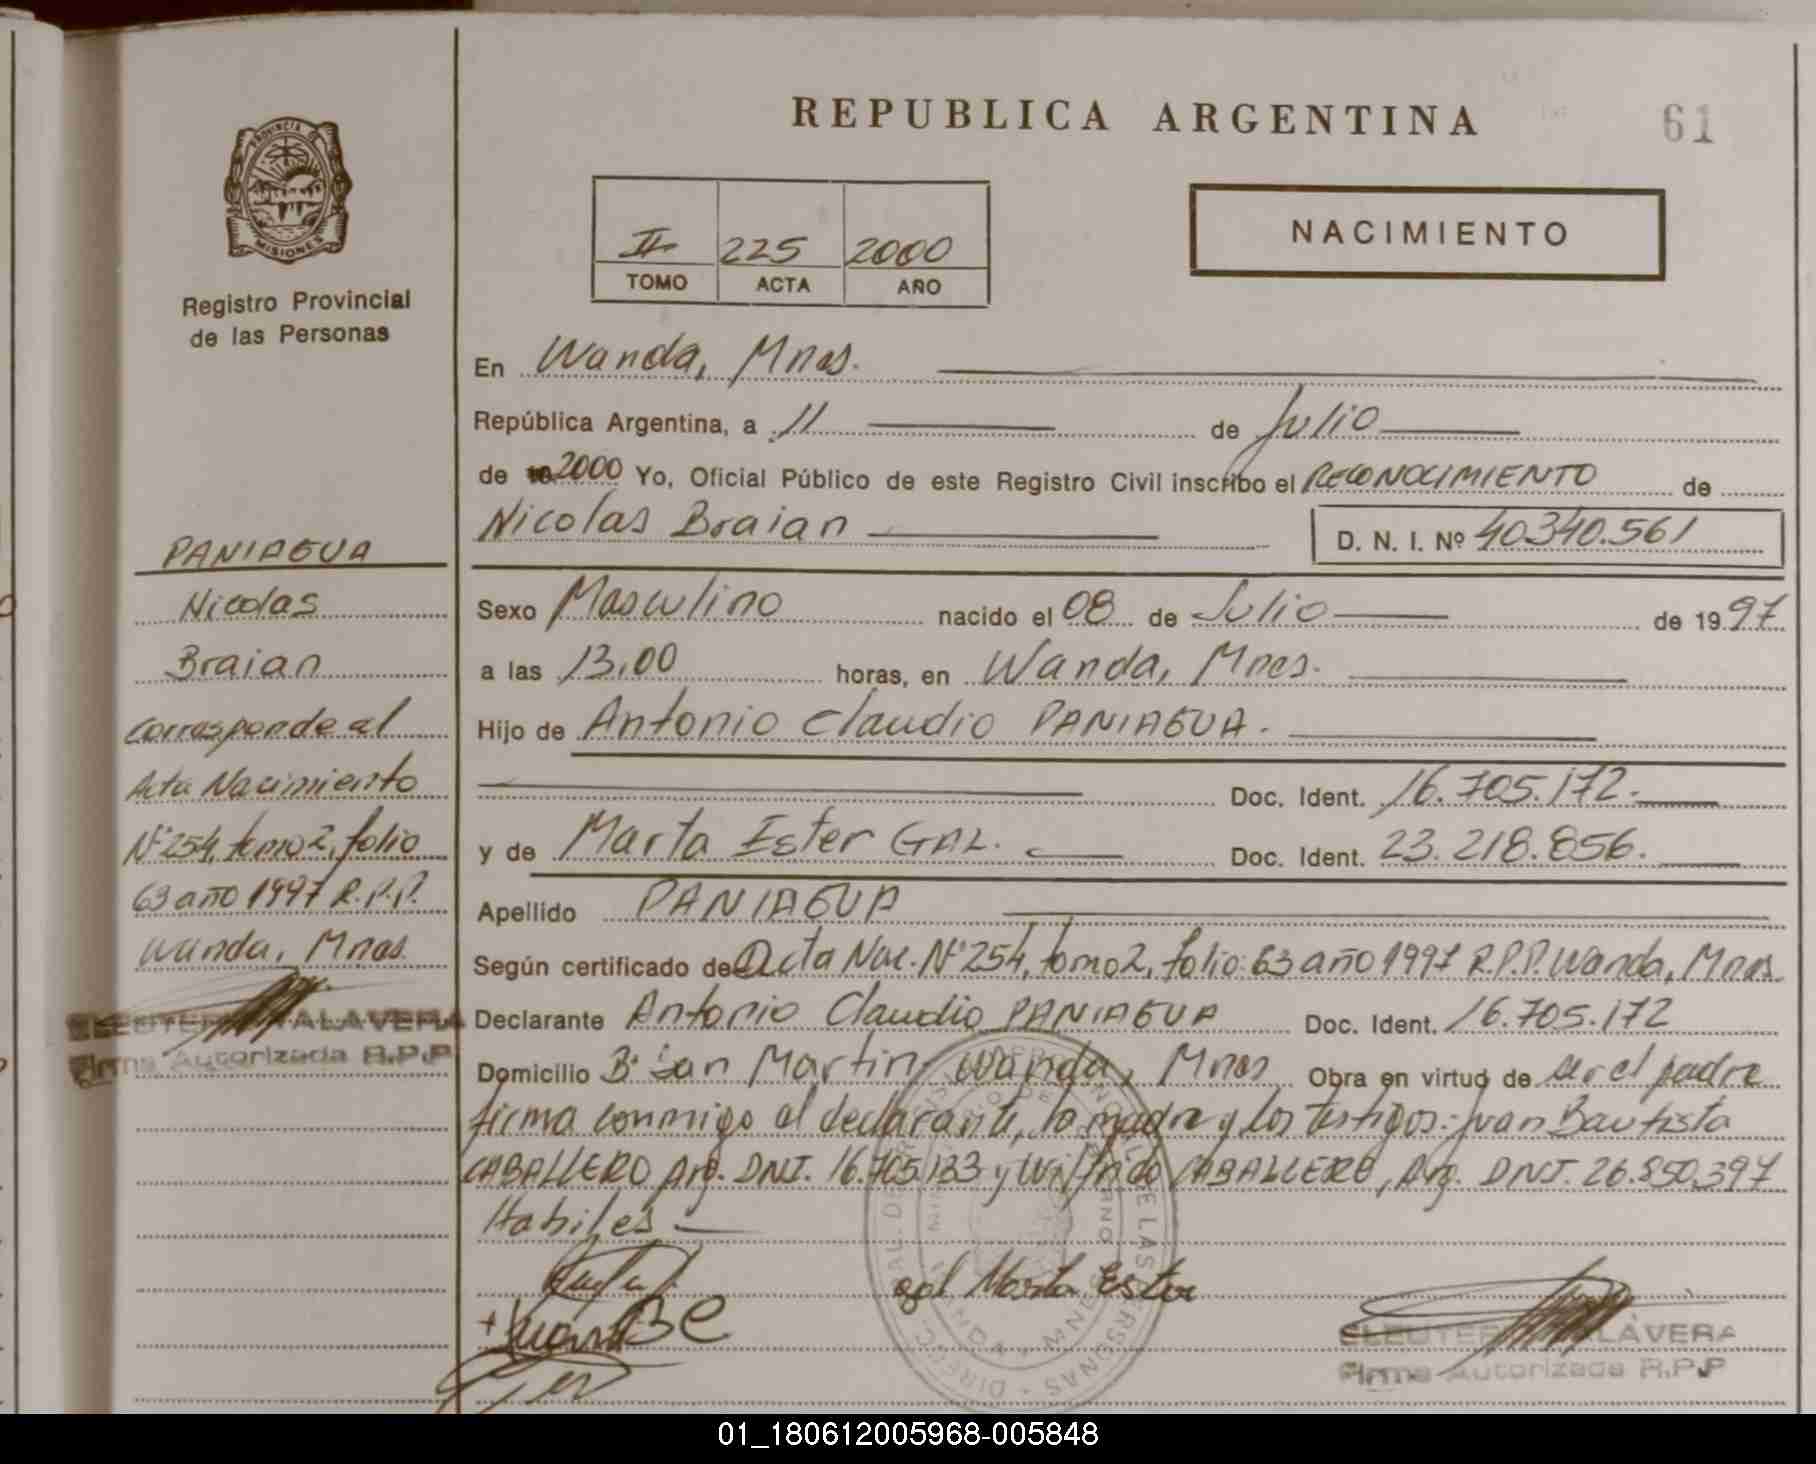 REPUBLICA ARGENTINA
61
PROVINCIA DE
MISIONES
Registro Provincial
de las Personas
II 225 2000
TOMO ACTA AÑO
NACIMIENTO
En Wanda, Mnes.
República Argentina, a 11 de Julio
de 2000 Yo, Oficial Público de este Registro Civil inscribo el RECONOCIMIENTO de
Nicolas Braian D. N. I. Nº 40.340.561
Sexo Masculino nacido el 08 de Julio de 1997
a las 13,00 horas, en Wanda, Mnes.
Hijo de Antonio Claudio PANIAGUA.
Doc. Ident. 16.705.172.
y de Marta Ester GAL. Doc. Ident. 23.218.856.
Apellido PANIAGUA
Según certificado de Acta Nac. Nº 254, tomo 2, folio: 63 año 1997 R.P.P. Wanda, Mnes.
Declarante Antonio Claudio PANIAGUA Doc. Ident. 16.705.172
Domicilio Bº San Martin, Wanda, Mnes Obra en virtud de ser el padre
firma conmigo el declarante, la madre y los testigos: Juan Bautista
CABALLERO Arg. DNI. 16.705.133 y Wilfrido CABALLERO, Arg. DNI. 26.850.397
Habiles
gal Marta Ester
ELEUTERIO TALAVERA
Firma Autorizada R.P.P
PANIAGUA
Nicolas
Braian
Corresponde al
Acta Nacimiento
Nº 254, tomo 2, folio
63 año 1997 R.P.P.
Wanda, Mnes.
ELEUTERIO TALAVERA
Firma Autorizada R.P.P
01_180612005968-005848